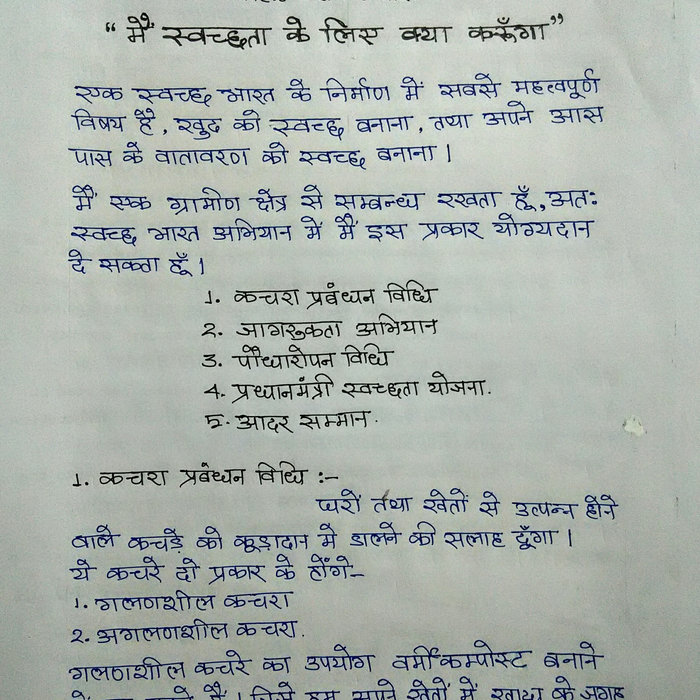 “मैं स्वच्छता के लिए क्या करूँगा”
एक स्वच्छ भारत के निर्माण में सबसे महत्वपूर्ण
विषय है, खुद को स्वच्छ बनाना, तथा अपने आस
पास के वातावरण को स्वच्छ बनाना।
मैं एक ग्रामीण क्षेत्र से सम्बन्ध रखता हूँ, अतः
स्वच्छ भारत अभियान में मैं इस प्रकार योग्यदान
दे सकता हूँ।
1. कचरा प्रबंधन विधि
2. जागरुकता अभियान
3. पौधारोपन विधि
4. प्रधानमंत्री स्वच्छता योजना.
5. आदर सम्मान.
1. कचरा प्रबंधन विधि :-
घरों तथा खेतों से उत्पन्न होने
बाले कचड़े को कूड़ादान मे डालने की सलाह दूँगा।
ये कचरे दो प्रकार के होंगे-
1. गलणशील कचरा
2. अगलणशील कचरा.
गलणशील कचरे का उपयोग वर्मीकम्पोस्ट बनाने